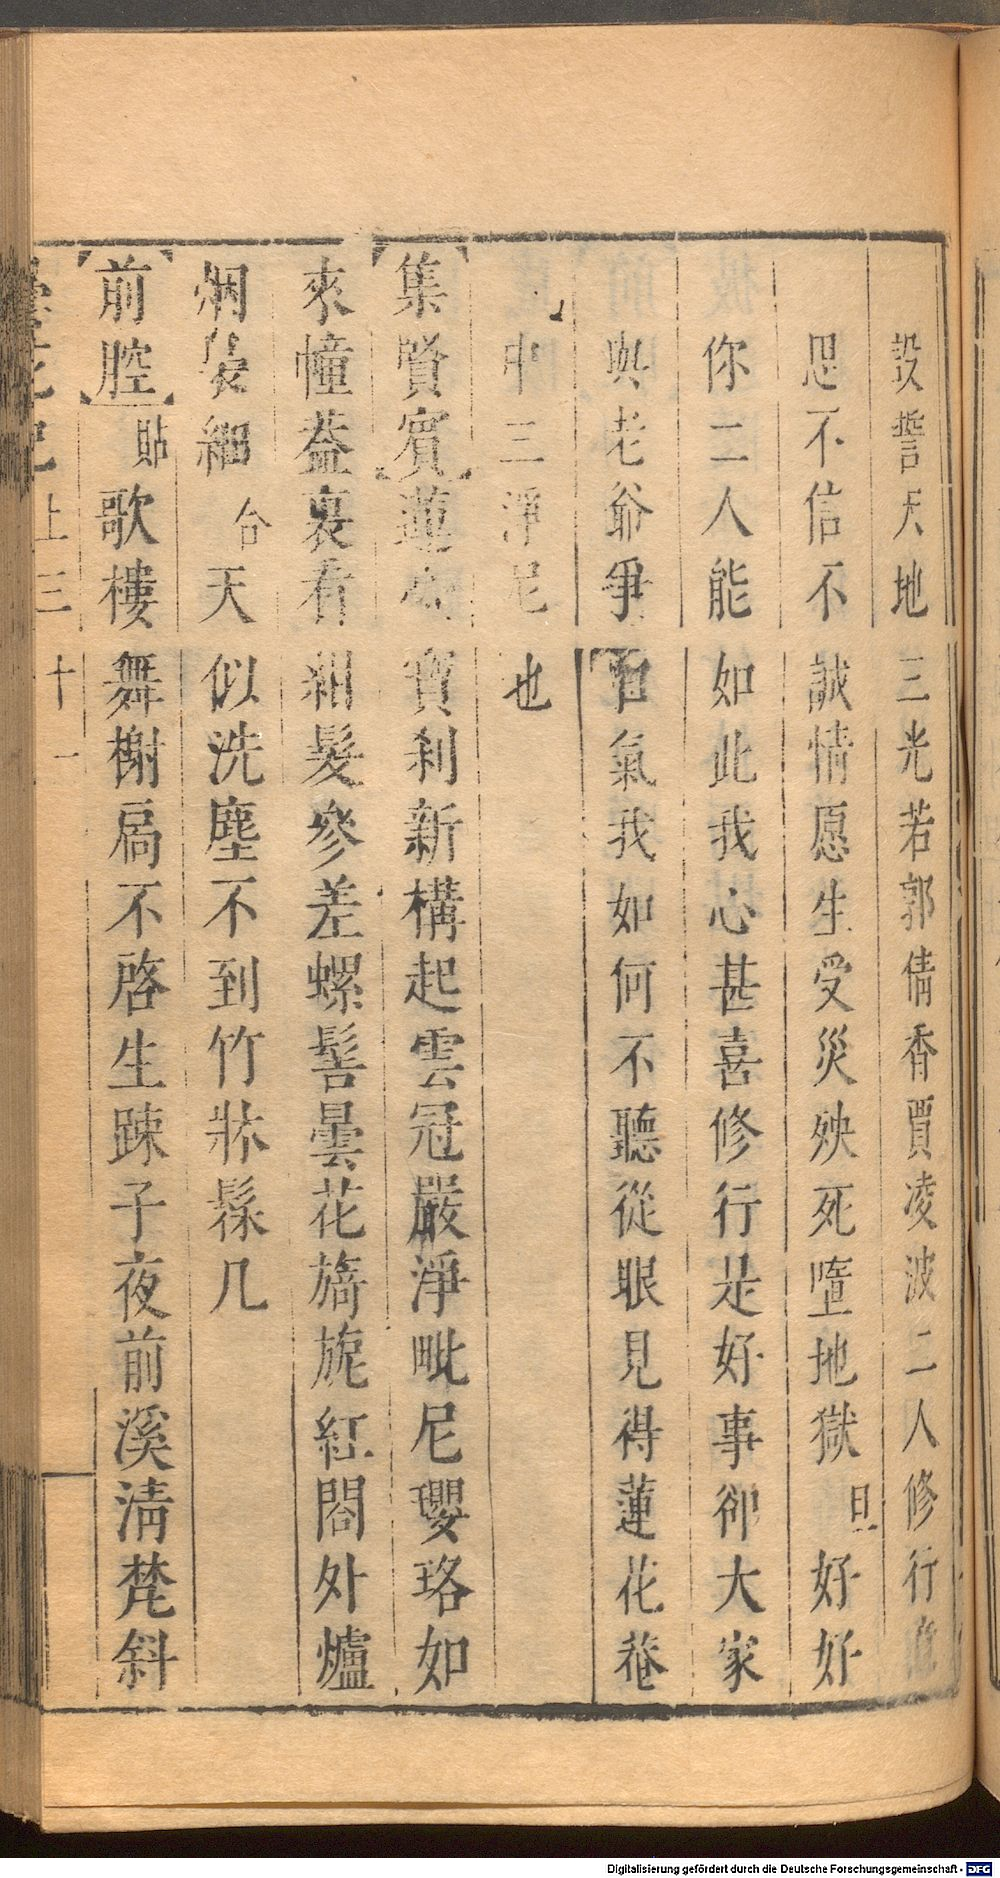 設誓天地三光若郭倩香賈凌波二人修行
思不信不誠情愿生受災殃死墮地獄旦好好
你二人能如此我心甚喜修行是好事卻大家
與老爺爭口氣我如何不聽從眼見得蓮花菴
中三淨尼也
集賢賓蓮寶刹新構起雲冠嚴淨毗尼瓔珞如
來幢葢裏看紺髮參差螺髻曇花旖旎紅閣外爐
烟裊細合天似洗塵不到竹牀髹几
前腔貼歌樓舞榭扃不啓生疎子夜前溪清梵斜
上三十一
Digitalisierung gefördert durch die Deutsche Forschungsgemeinschaft - DFG